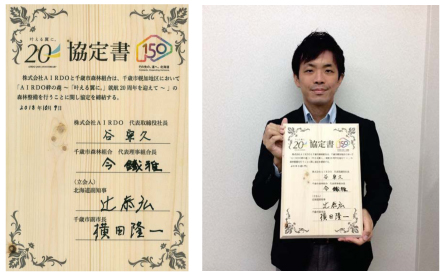 叶える翼に。
20th
協定書
150
株式会社AIRDOと千歳市森林組合は、千歳市幌加地区において
「AIRDO絆の森 ～『叶える翼に。』就航20周年を迎えて～」の
森林整備を行うことに関し協定を締結する。
2018年10月9日
株式会社AIRDO 代表取締役社長
谷 寧久
千歳市森林組合 代表理事組合長
今 鐵雅
(立会人)
北海道副知事
辻 泰弘
千歳市副市長
横田隆一
20th
協定書
150
谷 寧久
今 鐵雅
辻 泰弘
横田隆一